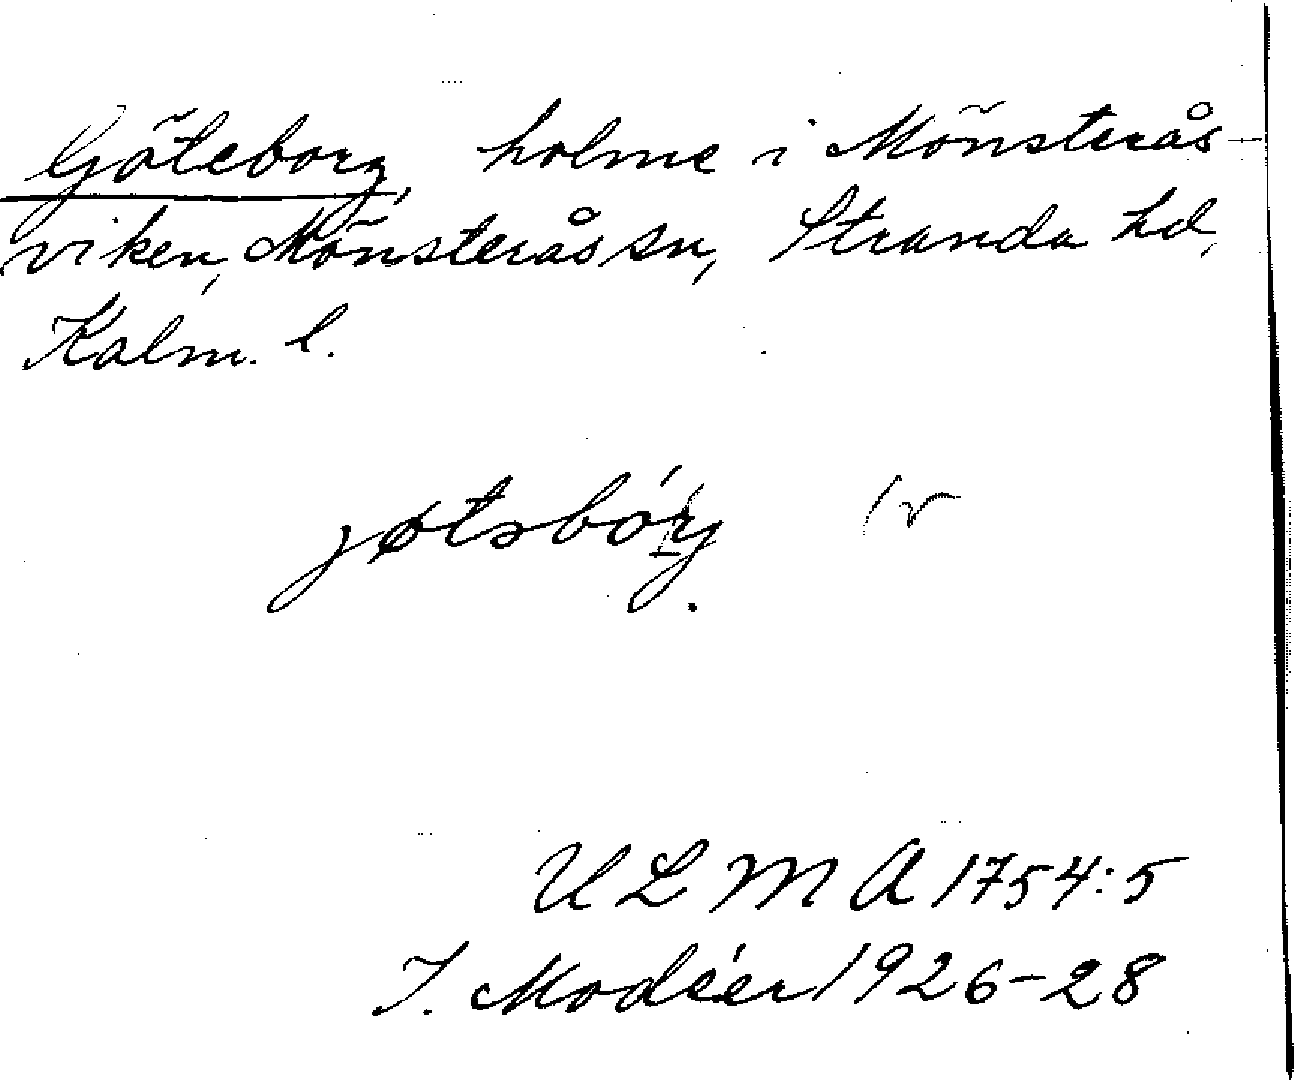 Göteborg, holme i Mönsterås-
viken, Mönsterås sn, Stranda hd,
Kalm. l.
jøtəbórj
ULMA 1754:5
I. Modéer 1926-28